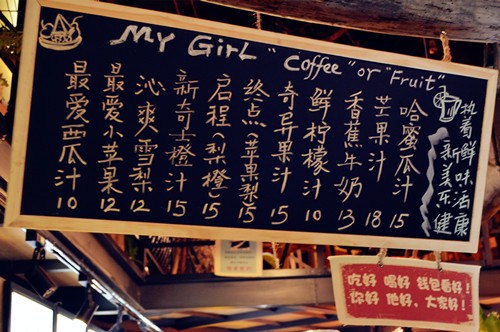 My Girl "Coffee" or "Fruit"
最爱西瓜汁 10
最爱小苹果 12
沁爽雪梨 12
新奇士橙汁 15
启程(梨橙) 15
终点(苹果梨) 15
奇异果汁 15
鲜柠檬汁 10
香蕉牛奶 13
芒果汁 18
哈蜜瓜汁 15
执着新鲜美味乐活健康
吃好 喝好 钱包看好!
你好 他好, 大家好!